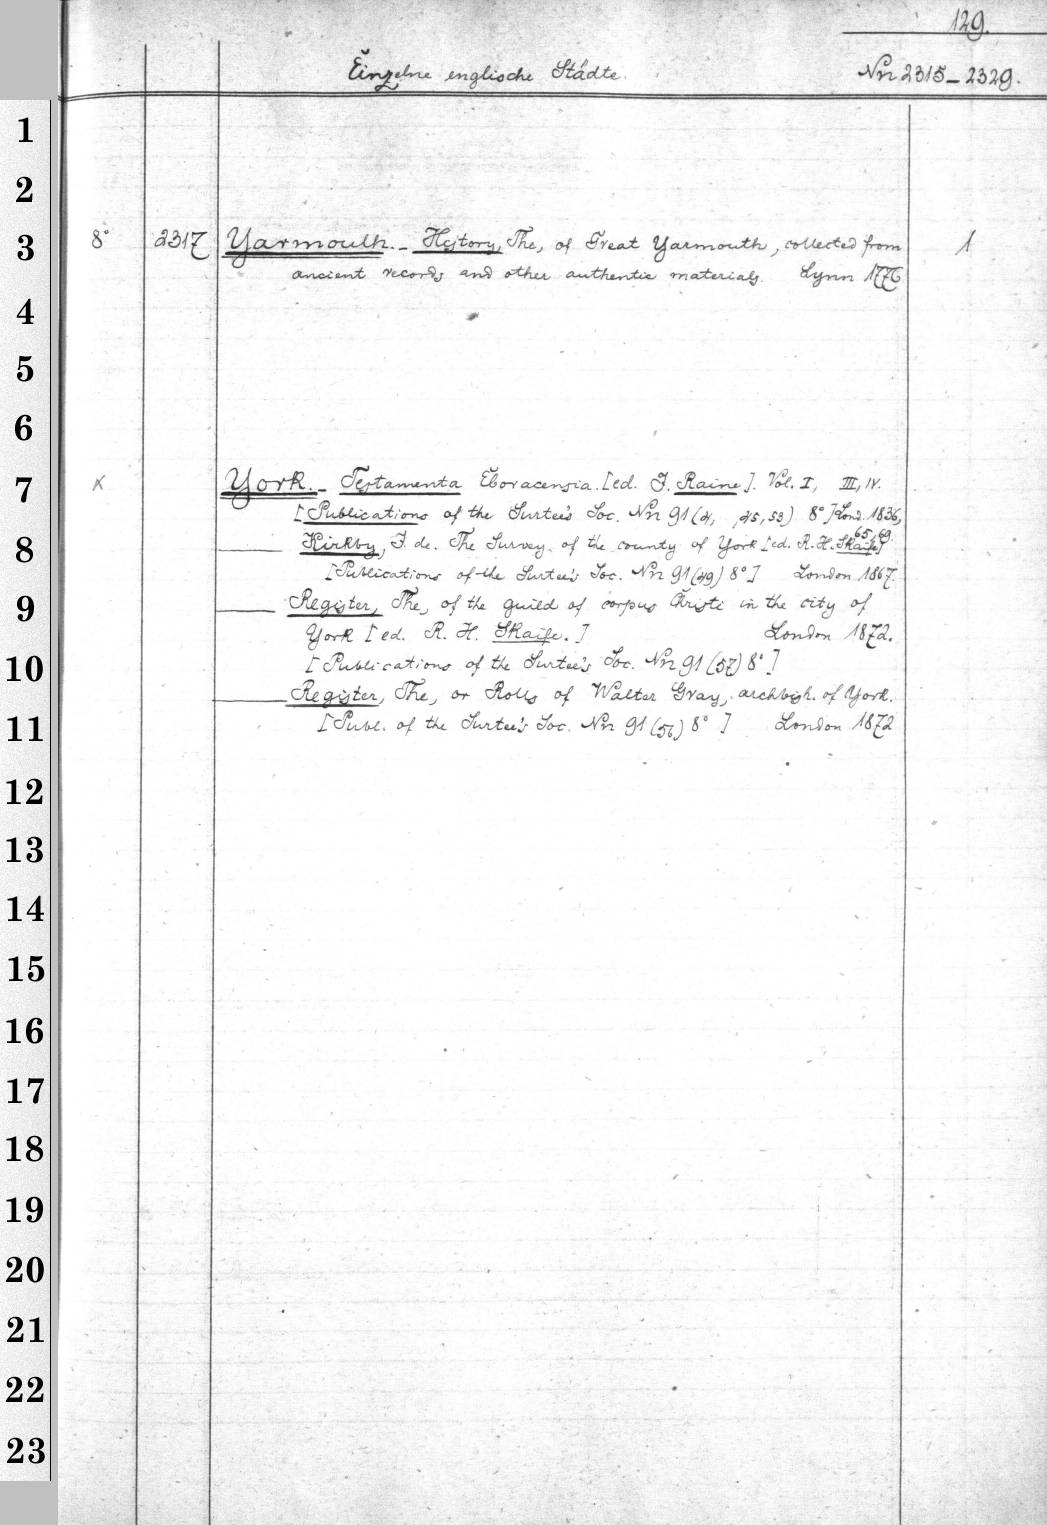 129.
Einzelne englische Städte. Nrr 2315-2329.
1
2
3 8° 2317 Yarmouth. - History, The, of Great Yarmouth, collected from 1
ancient records and other authentic materials. Lynn 1776
4
5
6
7 x York. - Testamenta Eboracensia. [ed. J. Raine]. Vol. I, III, IV.
[Publications of the Surtee's Soc. Nrr 91 (4, 45, 53) 8°] Lond. 1836,
65, 69.
8 Kirkby, J. de. The Survey of the county of York [ed. R. H. Skaife]
[Publications of the Surtee's Soc. Nrr 91 (49) 8°] London 1867.
9 Register, The, of the guild of corpus Christi in the city of
York [ed. R. H. Skaife.] London 1872.
10 [Publications of the Surtee's Soc. Nrr 91 (57) 8°]
Register, The, or Rolls of Walter Gray, archbish. of York.
11 [Publ. of the Surtee's Soc. Nrr 91 (56) 8°] London 1872
12
13
14
15
16
17
18
19
20
21
22
23